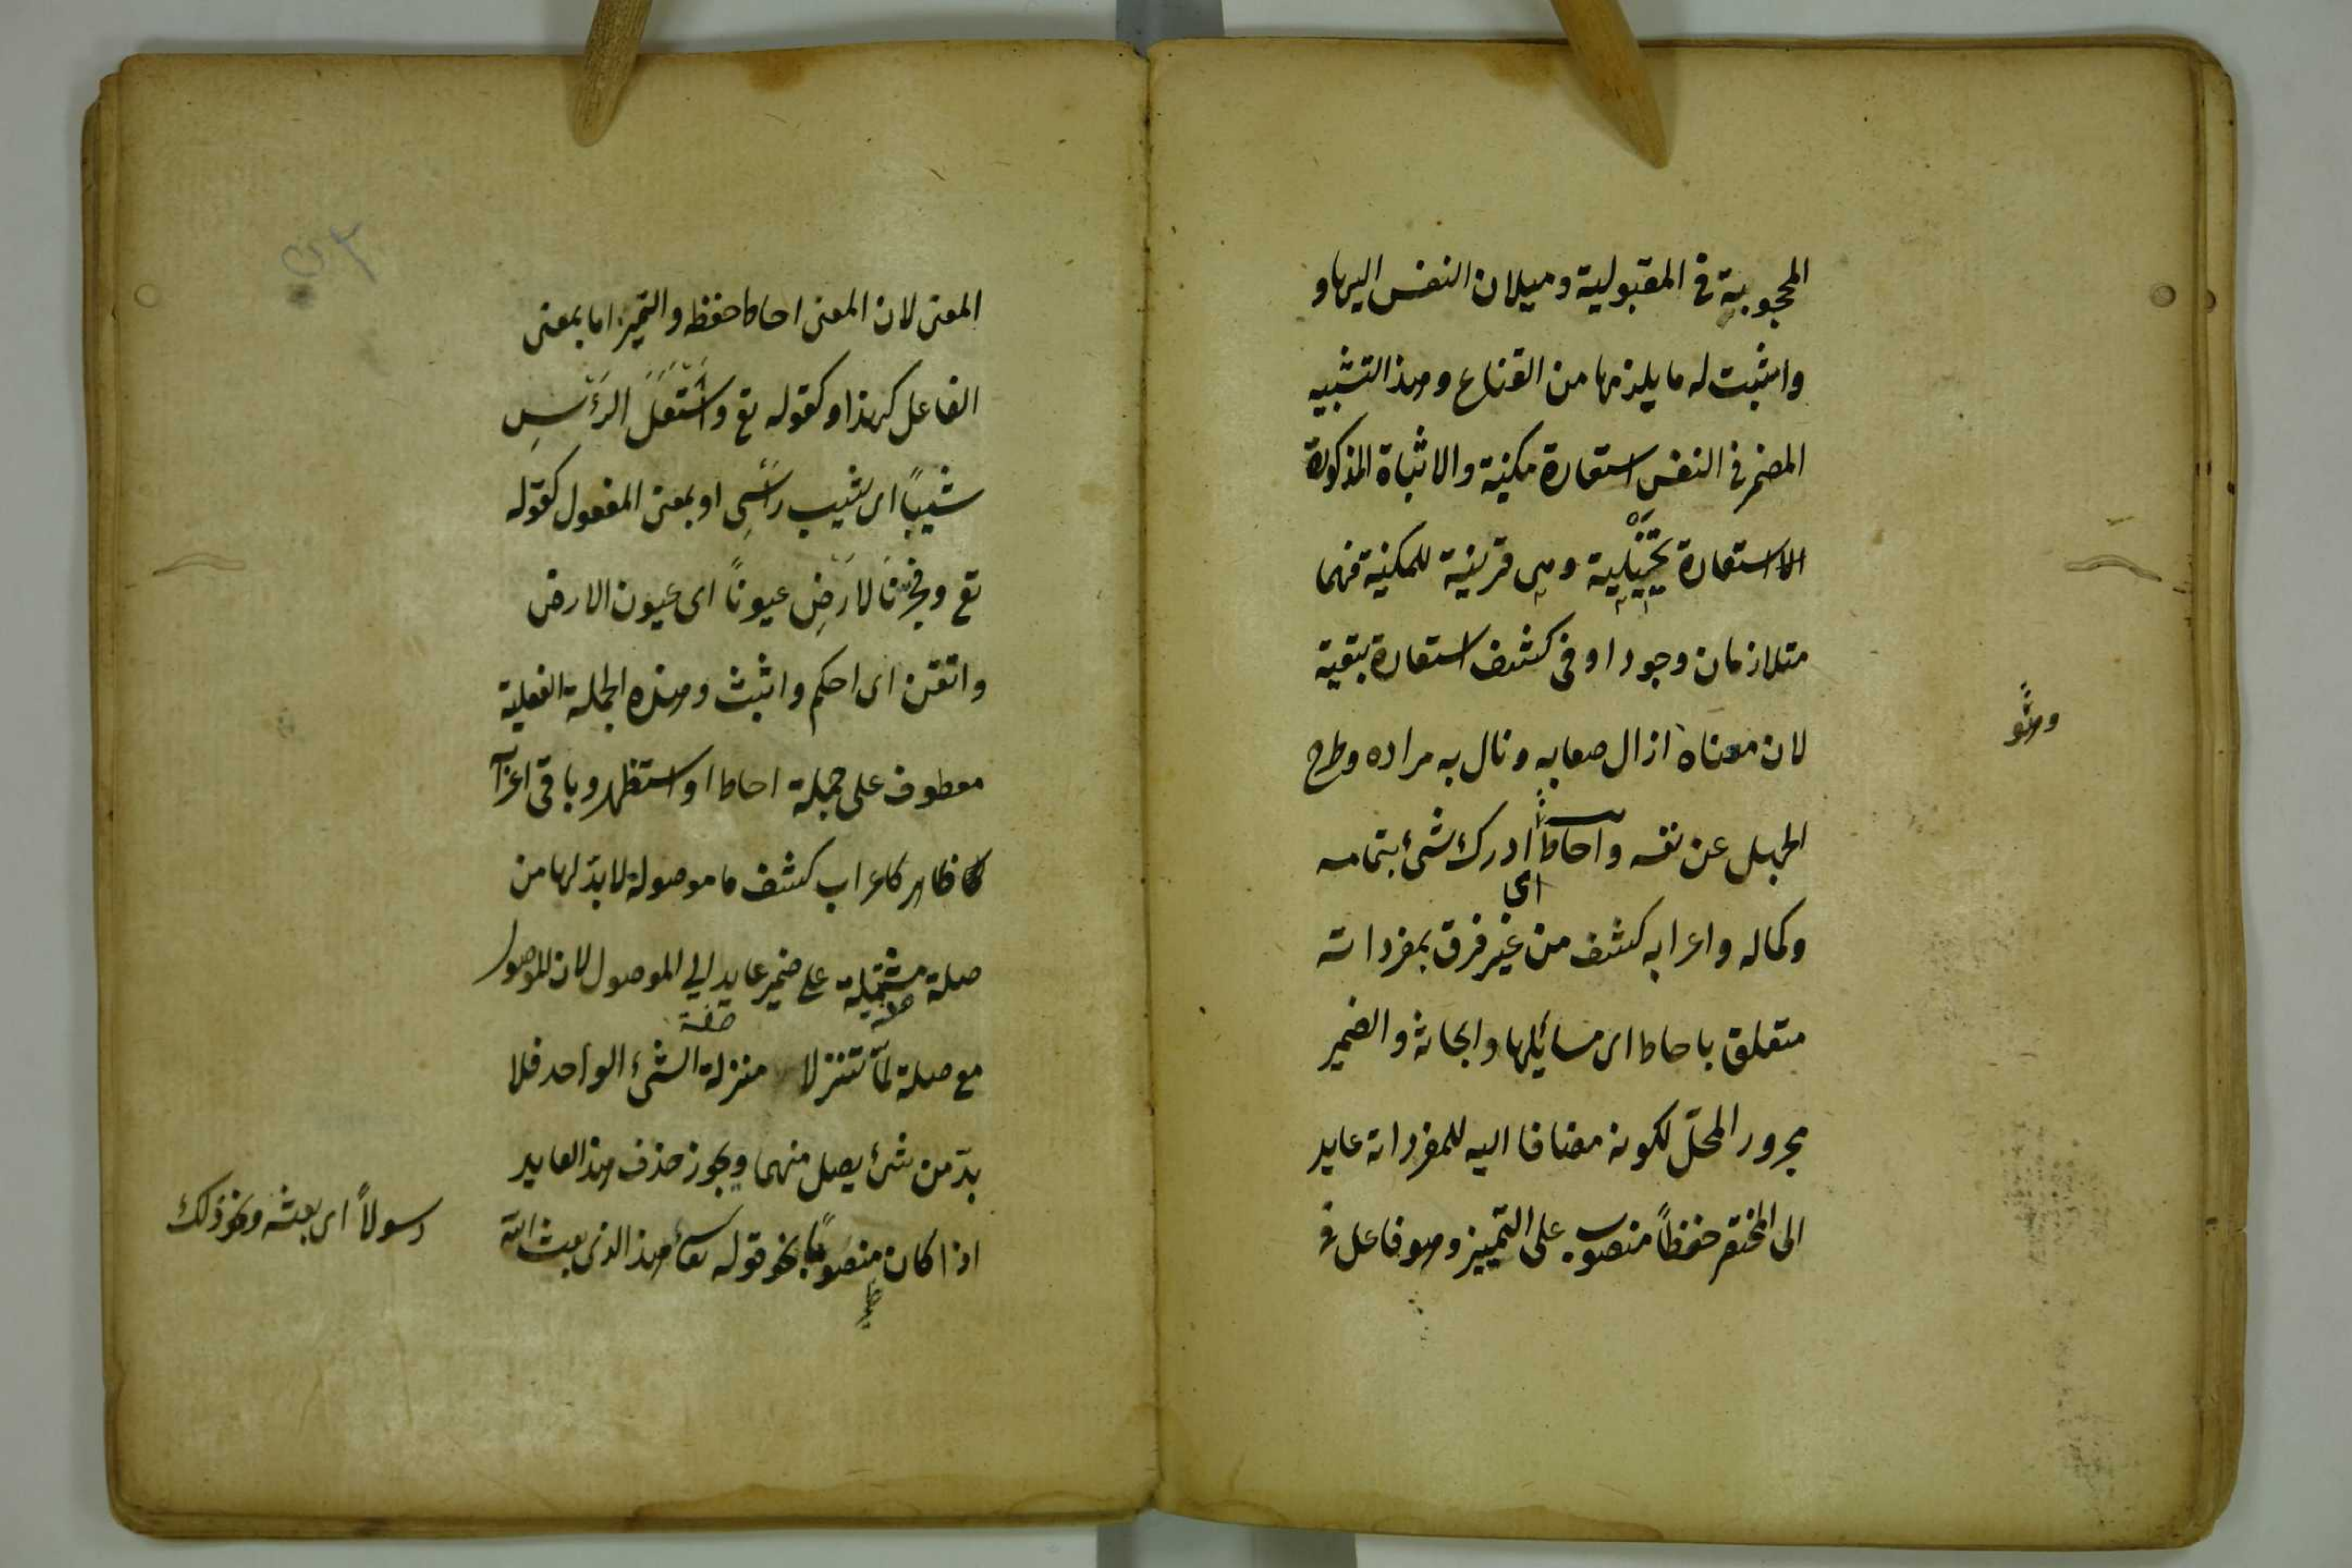 المحجوبية في المقبولية وميلان النفس اليها و
واثبت له ما يلزمها من القناع وهذا التشبيه
المضمر في النفس استعارة مكنية والاثباة المذكورة
الاستعارة تخييلية وهي قرينة للمكنية فهما
متلازمان وجودا وفى كشف استعارة تبعية
لان معناه ازال صعابه ونال به مراده وطرح
وهو
الجهل عن نفسه واحاط ادرك شئ بتمامه
اى
وكماله واعرابه كشف من غير فرق بمفرداته
متعلق باحاط اى مسائلها وابحاثه والضمير
مجرور المحلّ لكونه مضافا اليه للمفرداته عايد
الى المختصر حفظاً منصوب على التمييز وهو فاعل فى
٥٢
المعنى لان المعنى احاط حفظه والتميز اما بمعنى
الفاعل كهذا وكقوله تع واشْتَعَلَ الرَّئْسِ
شيباً اى شيب رأسي او بمعنى المفعول كقوله
تع وفجّرنَا لارَضِ عيوناً اى عيون الارض
واتقن اى احكم واثبث وهذه الجملة الفعلية
معطوف على جملة احاط او استظهر وباقى
كاظاهر كاعراب كشف ما موصولة لابدّ لها من
صلة مشتملة على ضمير عايد الي الموصول لان للموصول
صفة
مع صلة لمّا تتنزلا منزلة الشئ الواحد فلا
بدّ من شئ يصل منهما ويجوز حذف هذا العايد
اذا كان منصوباً نحو قوله تعا أهذا الذى بعث الله
رسولاً اى بعثه ونحو ذلك